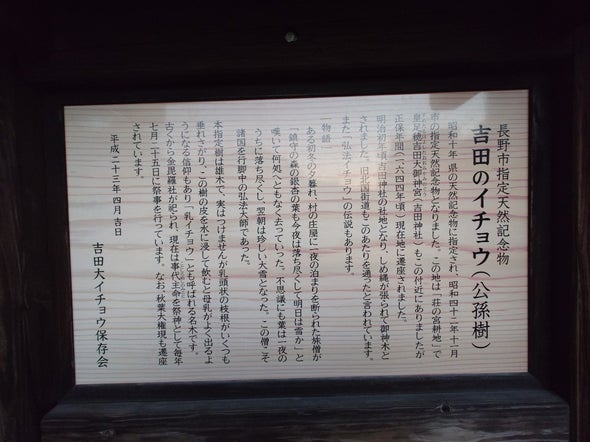 長野市指定天然記念物
吉田のイチョウ(公孫樹)
昭和十年 県の天然記念物に指定され、昭和四十二年十一月
市の指定天然記念物となりました。この地は「荘の宮耕地」で
皇足穂吉田大御神宮(吉田神社)もこの付近にありましたが
正保年間(一六四四年頃)現在地に遷座されました。
明治初年頃 吉田神社の社地となり、しめ縄が張られて御神木と
されました。旧北国街道もこのあたりを通ったと言われています。
また「弘法イチョウ」の伝説もあります。
物語
ある初冬の夕暮れ、村の庄屋に一夜の泊まりを断られた旅僧が
「鎮守の森の銀杏の葉も今夜は落ち尽くして明日は雪か」と
嘆いて何処へともなく去っていった。不思議にも葉は一夜の
うちに落ち尽くし、翌朝は珍しい大雪となった。この僧こそ
諸国を行脚中の弘法大師であった。
本指定樹は雄木で、実はつけませんが乳頭状の枝根がいくつも
垂れさがり、この樹の皮を水に浸して飲むと母乳がよく出るよ
うになる信仰もあり「乳イチョウ」とも呼ばれる名木です。
古くから金毘羅社が祀られ、現在は事代主命を祭神として毎年
七月二十五日に祭事を行っています。なお、秋葉大権現も遷座
されています。
平成二十三年四月吉日
吉田大イチョウ保存会